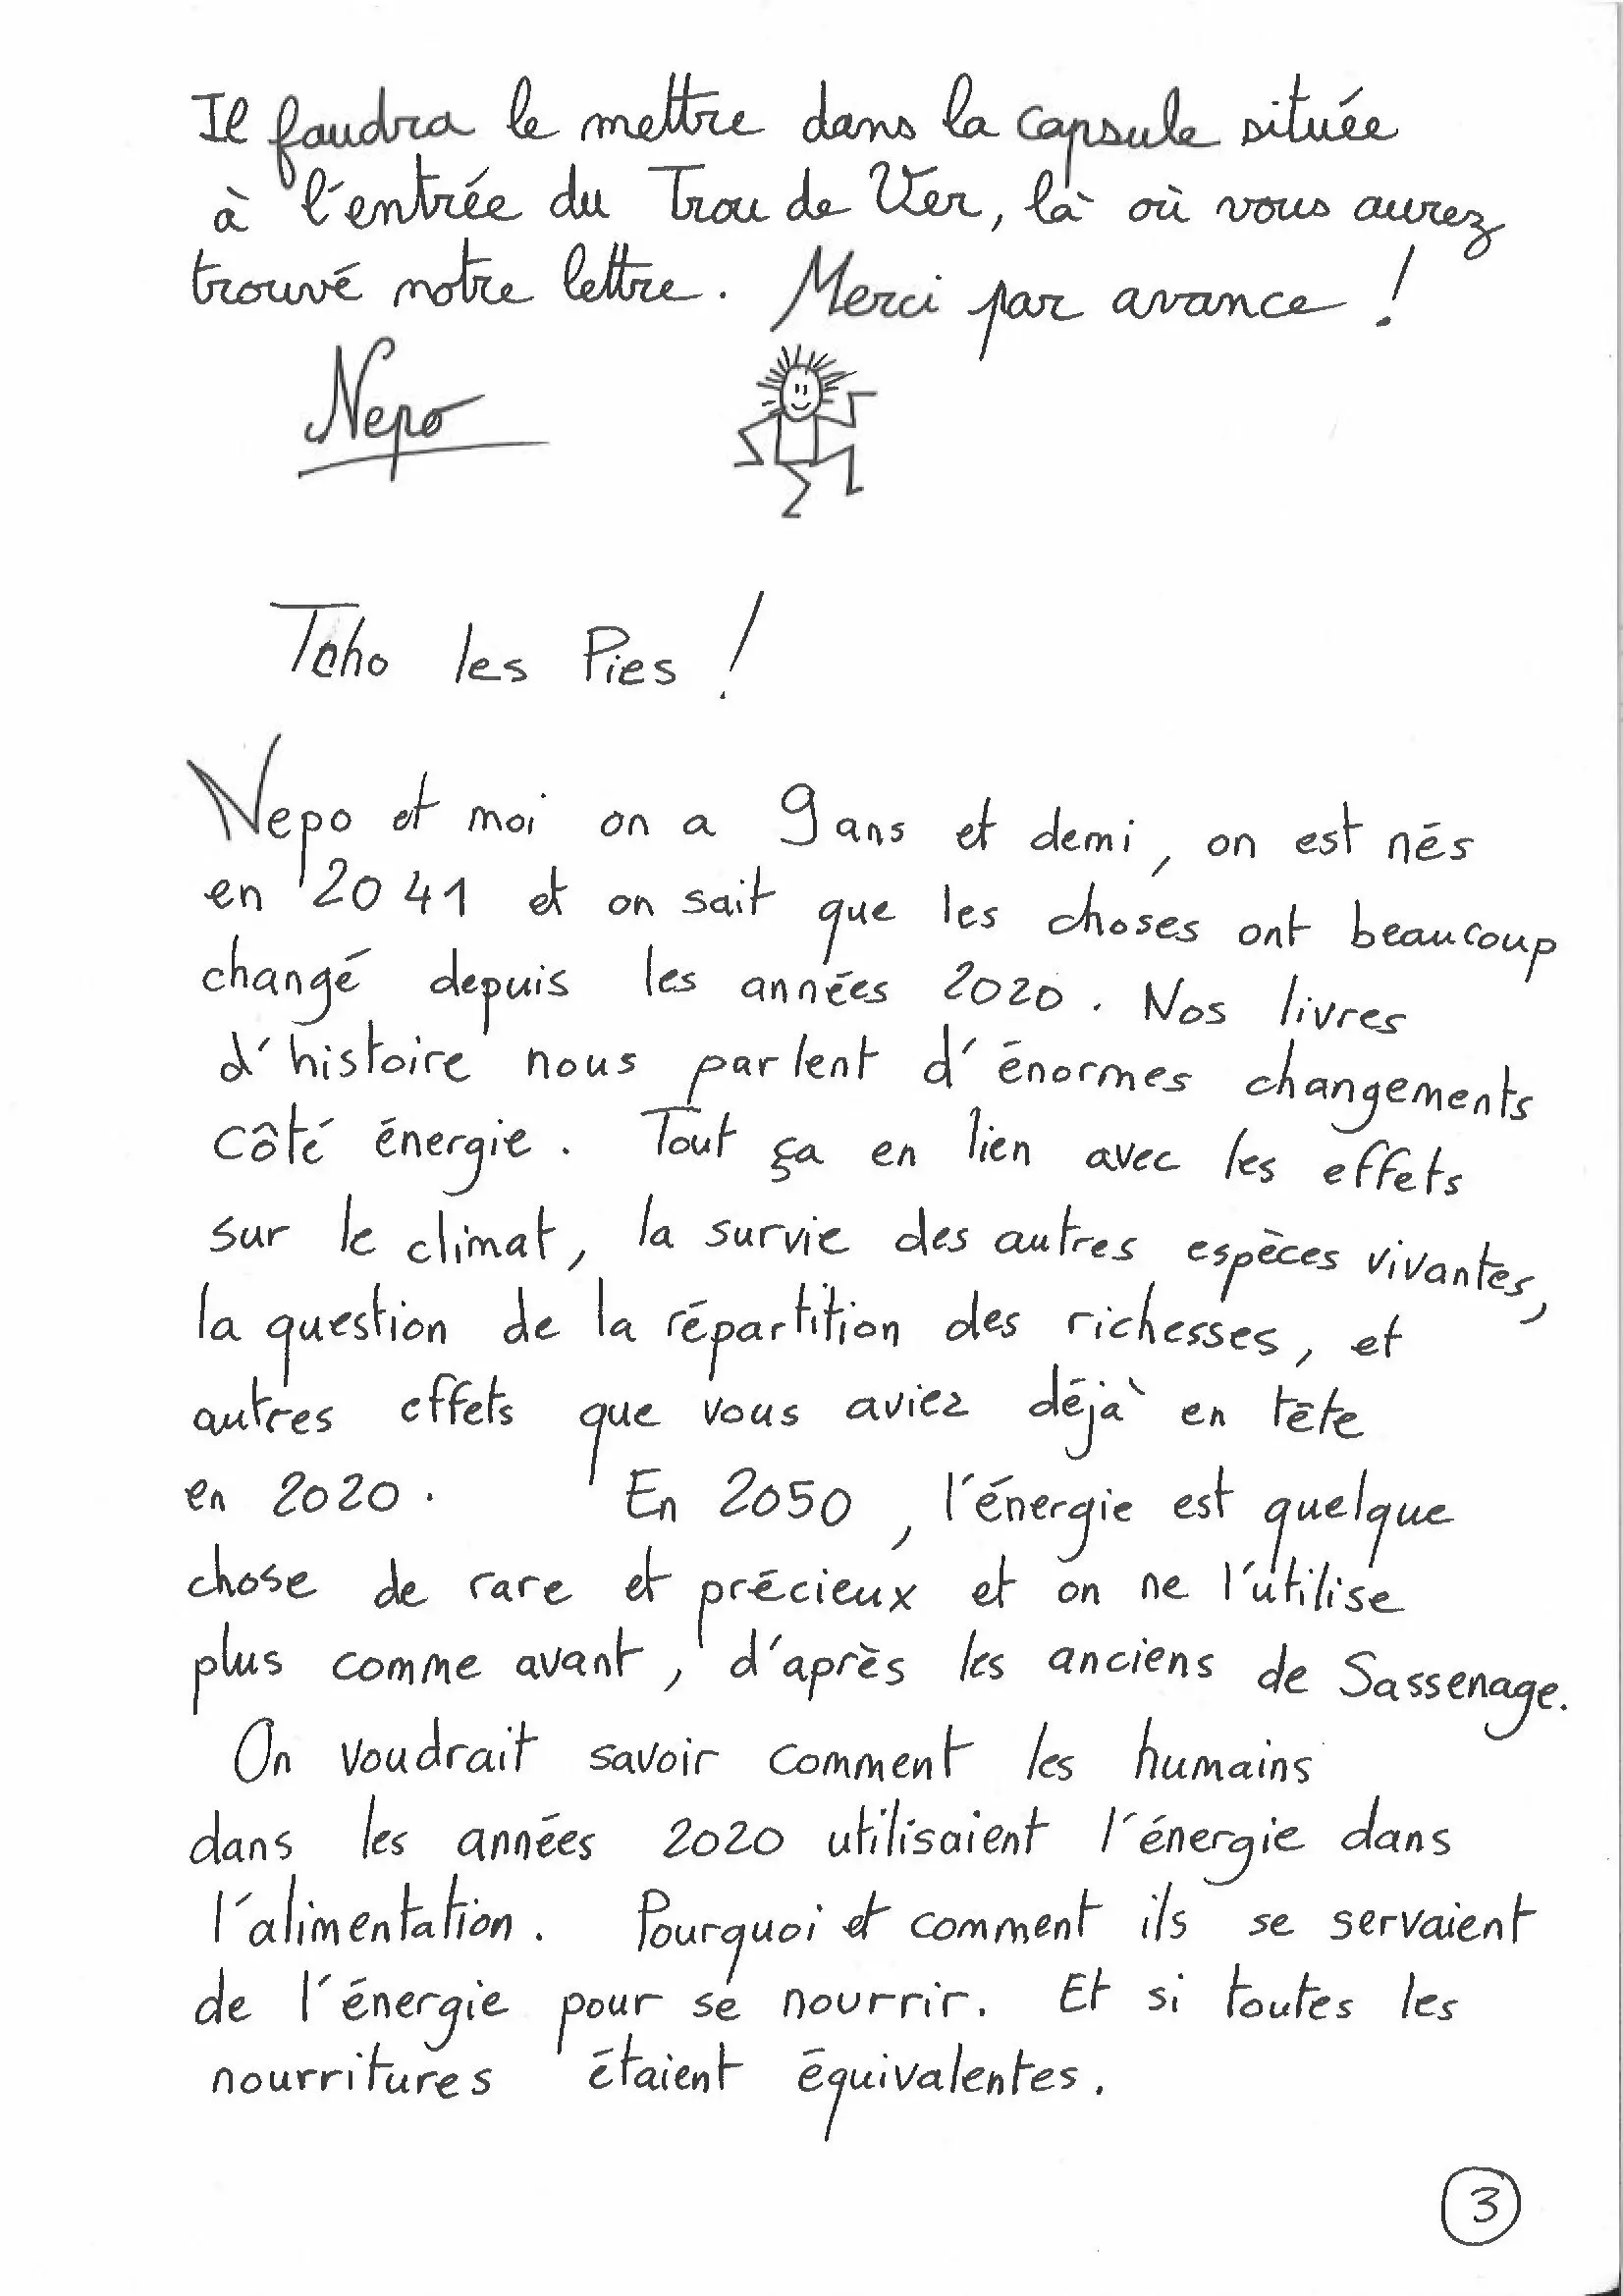 Il faudra le mettre dans la capsule située
à l'entrée du Trou de Ver, là où vous aurez
trouvé notre lettre. Merci par avance !
Nepo
Tcho les Pies !
Nepo et moi on a 9 ans et demi, on est nés
en 2041 et on sait que les choses ont beaucoup
changé depuis les années 2020. Nos livres
d'histoire nous parlent d'énormes changements
côté énergie. Tout ça en lien avec les effets
sur le climat, la survie des autres espèces vivantes,
la question de la répartition des richesses, et
autres effets que vous aviez déjà en tête
en 2020. En 2050, l'énergie est quelque
chose de rare et précieux et on ne l'utilise
plus comme avant, d'après les anciens de Sassenage.
On voudrait savoir comment les humains
dans les années 2020 utilisaient l'énergie dans
l'alimentation. Pourquoi et comment ils se servaient
de l'énergie pour se nourrir. Et si toutes les
nourritures étaient équivalentes.
3